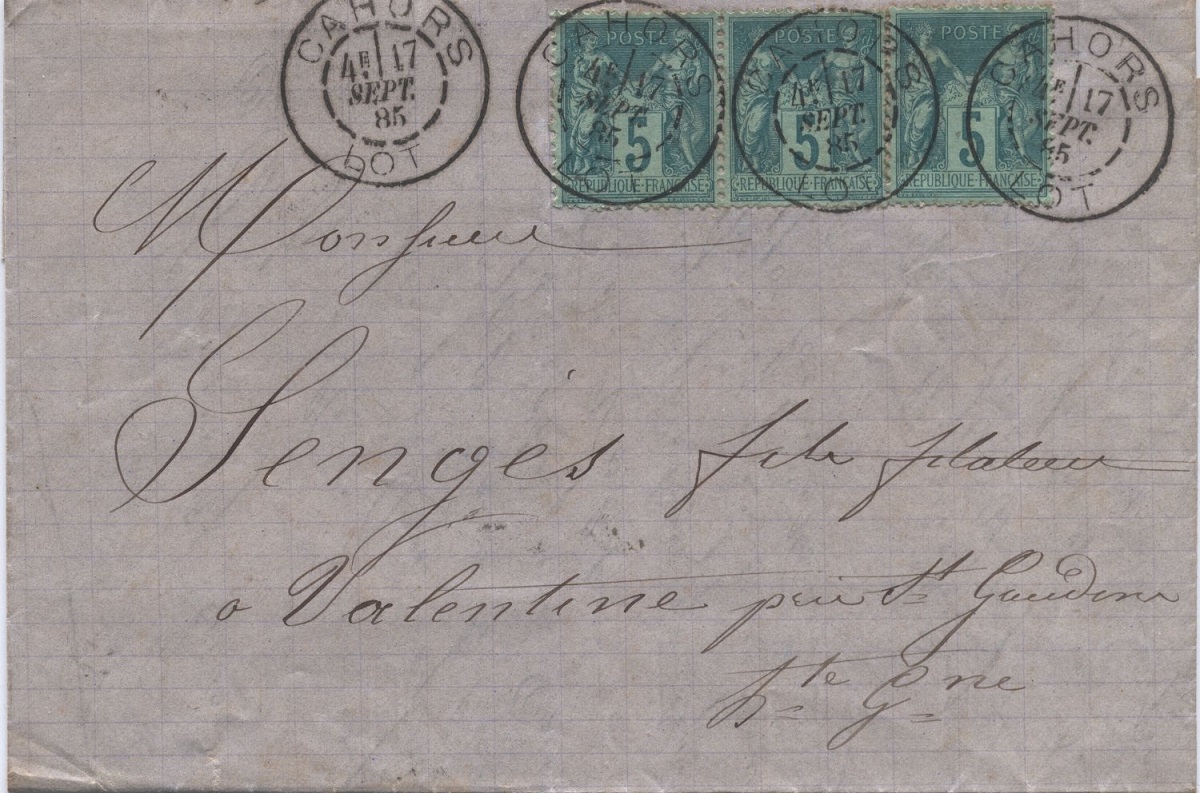 CAHORS
4E 17
SEPT.
85
LOT
CAHORS
4E 17
SEPT.
85
LOT
POSTE
5
REPUBLIQUE FRANÇAISE
CAHORS
4E 17
SEPT.
85
LOT
POSTE
5
REPUBLIQUE FRANÇAISE
CAHORS
4E 17
SEPT.
85
LOT
POSTE
5
REPUBLIQUE FRANÇAISE
Monsieur
Senges fils filateur
a Valentine près St Gaudens
Hte Gne